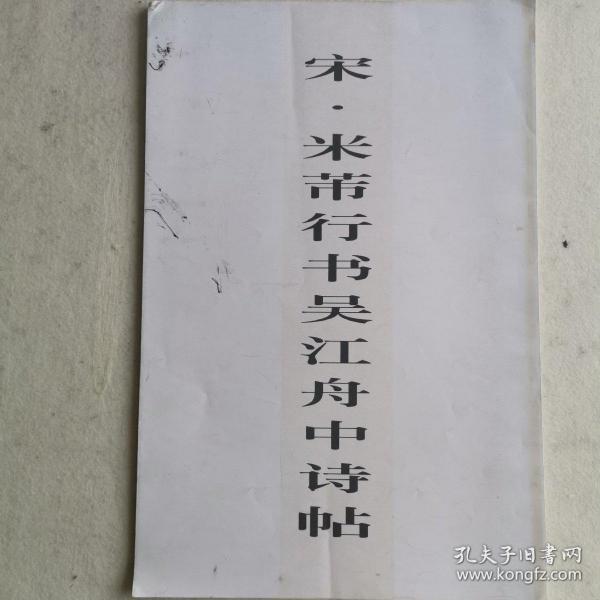 宋·米芾行书吴江舟中诗帖
孔夫子旧书网
www.kongfz.com